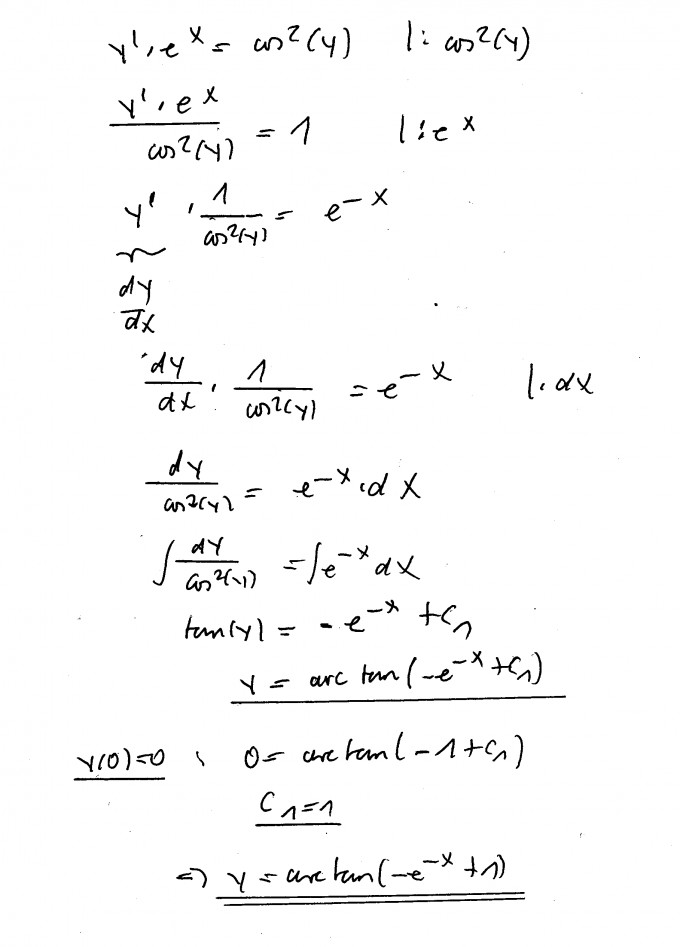 y' · e^x = cos²(y) |: cos²(y)
y' · e^x / cos²(y) = 1 |: e^x
y' · 1/cos²(y) = e^-x
dy/dx
dy/dx · 1/cos²(y) = e^-x |· dx
dy/cos²(y) = e^-x · dx
∫ dy/cos²(y) = ∫ e^-x dx
tan(y) = - e^-x + C₁
y = arc tan(-e^-x + C₁)
y(0)=0 : 0 = arc tan(-1 + C₁)
C₁ = 1
=> y = arc tan(-e^-x + 1)